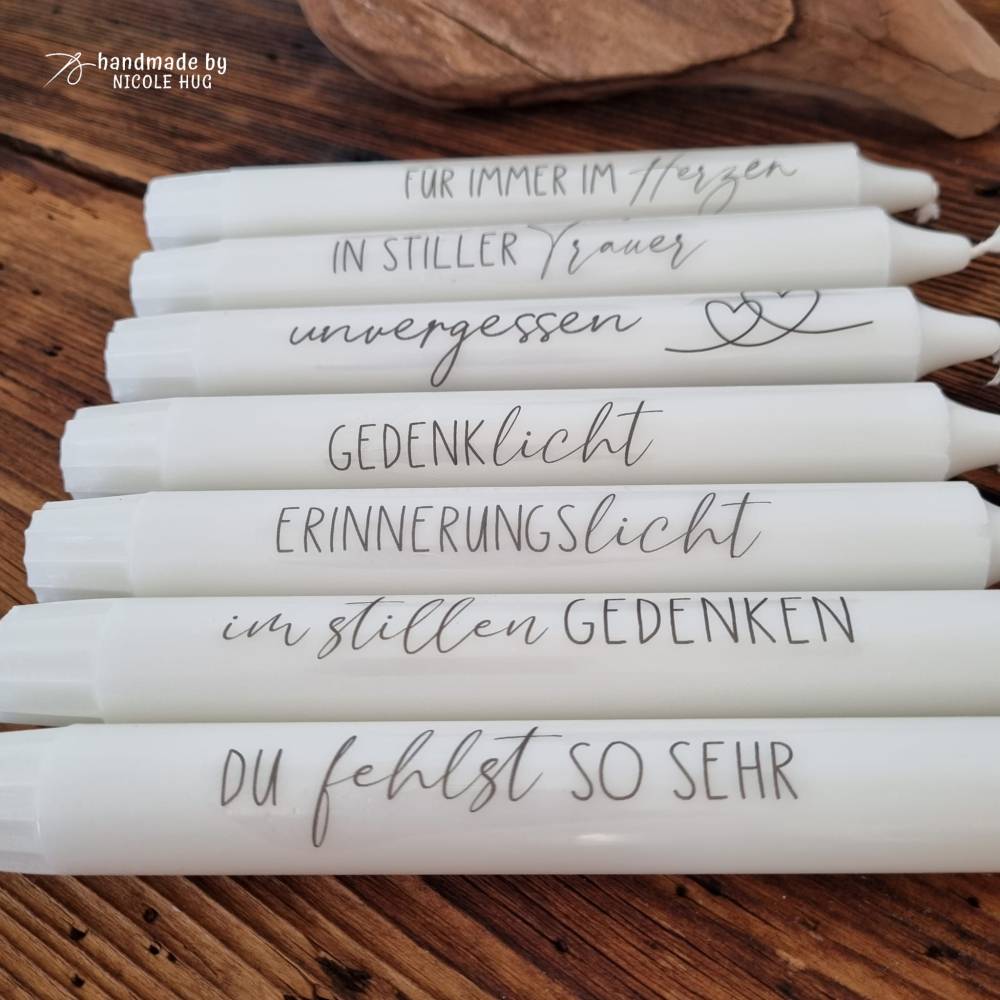 handmade by
NICOLE HUG
FÜR IMMER IM Herzen
IN STILLER Trauer
unvergessen
GEDENKlicht
ERINNERUNGSlicht
im stillen GEDENKEN
DU fehlst SO SEHR